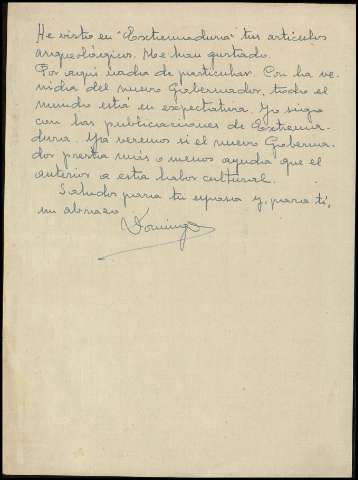 He visto en "Extremadura" tus artículos
arqueológicos. Me han gustado.
Por aquí nada de particular. Con la ve-
nida del nuevo Gobernador, todo el
mundo está en expectatura. Yo sigo
con las publicaciones de Extrema-
dura. Ya veremos si el nuevo Goberna-
dor presta más o menos ayuda que el
anterior a esta labor cultural.
Saludos para tu esposa y, para ti,
un abrazo
Domingo